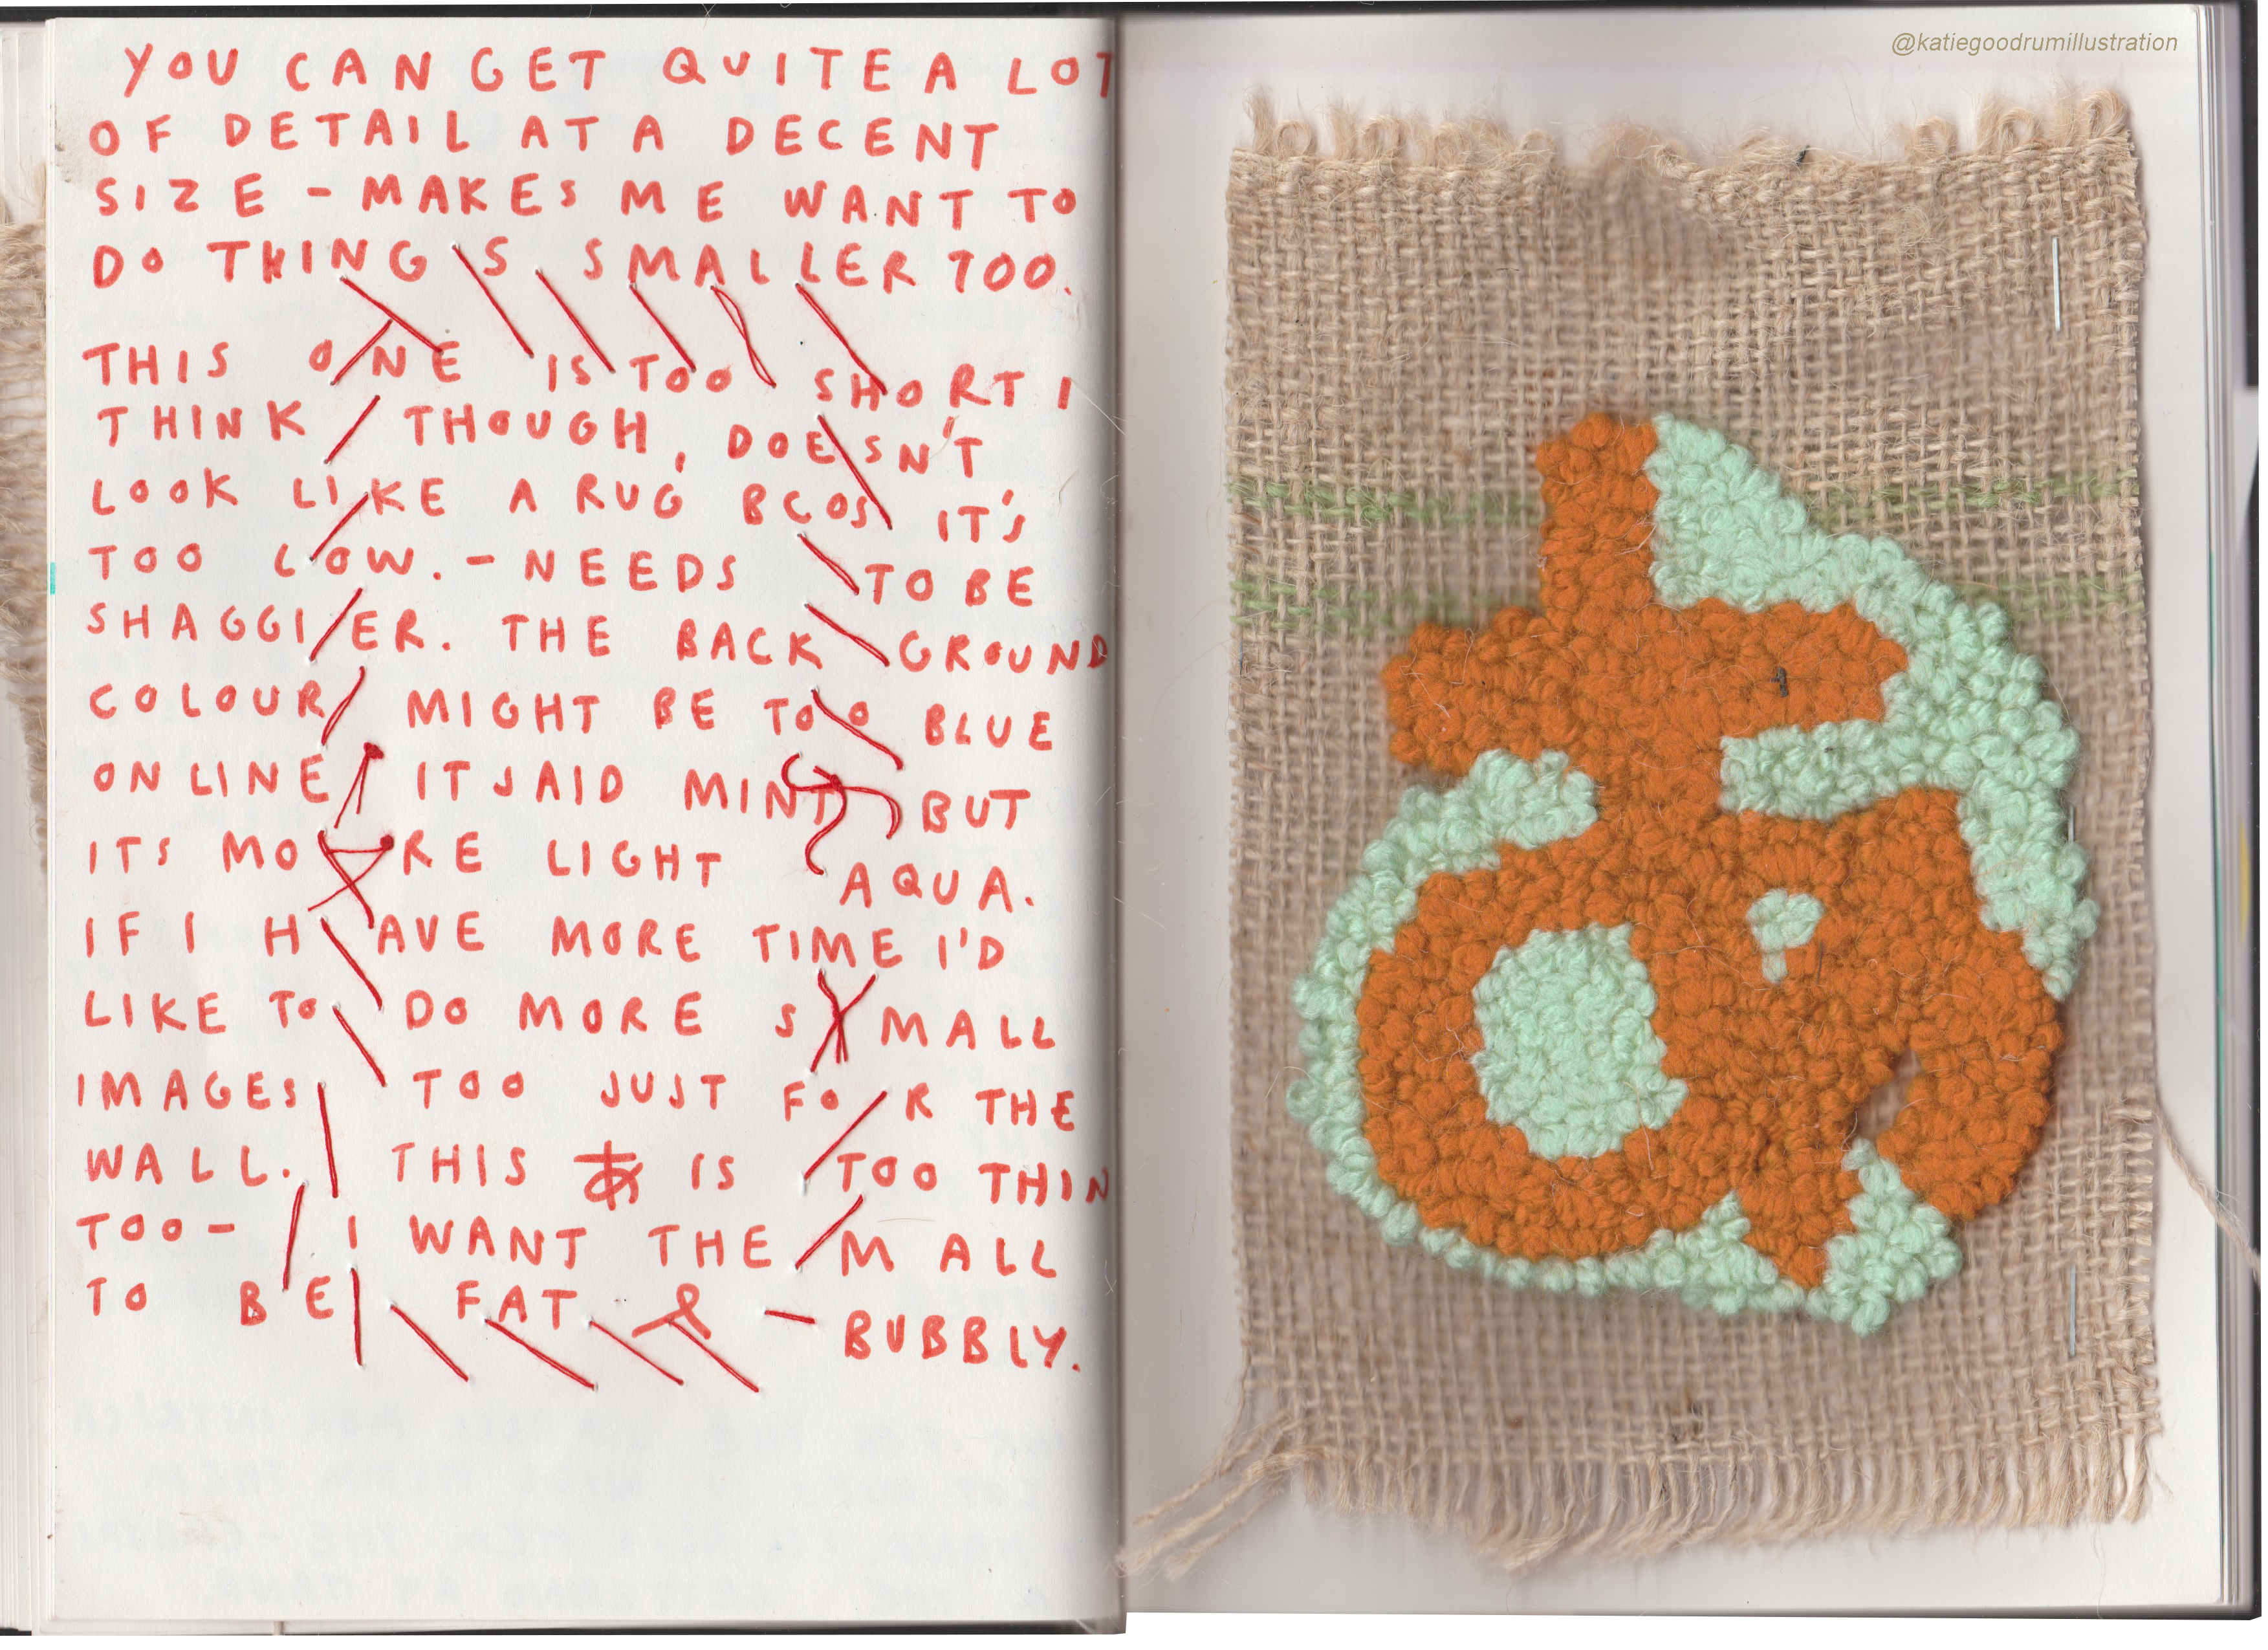 @katiegoodrumillustration
YOU CAN GET QUITE A LOT
OF DETAIL AT A DECENT
SIZE - MAKES ME WANT TO
DO THINGS SMALLER TOO.
THIS ONE IS TOO SHORT I
THINK THOUGH, DOESN'T
LOOK LIKE A RUG BCOS IT'S
TOO LOW. - NEEDS TO BE
SHAGGIER. THE BACKGROUND
COLOUR MIGHT BE TOO BLUE
ONLINE IT SAID MINT BUT
ITS MORE LIGHT AQUA.
IF I HAVE MORE TIME I'D
LIKE TO DO MORE SMALL
IMAGES TOO JUST FOR THE
WALL. THIS あ IS TOO THIN
TOO - I WANT THEM ALL
TO BE FAT & BUBBLY.